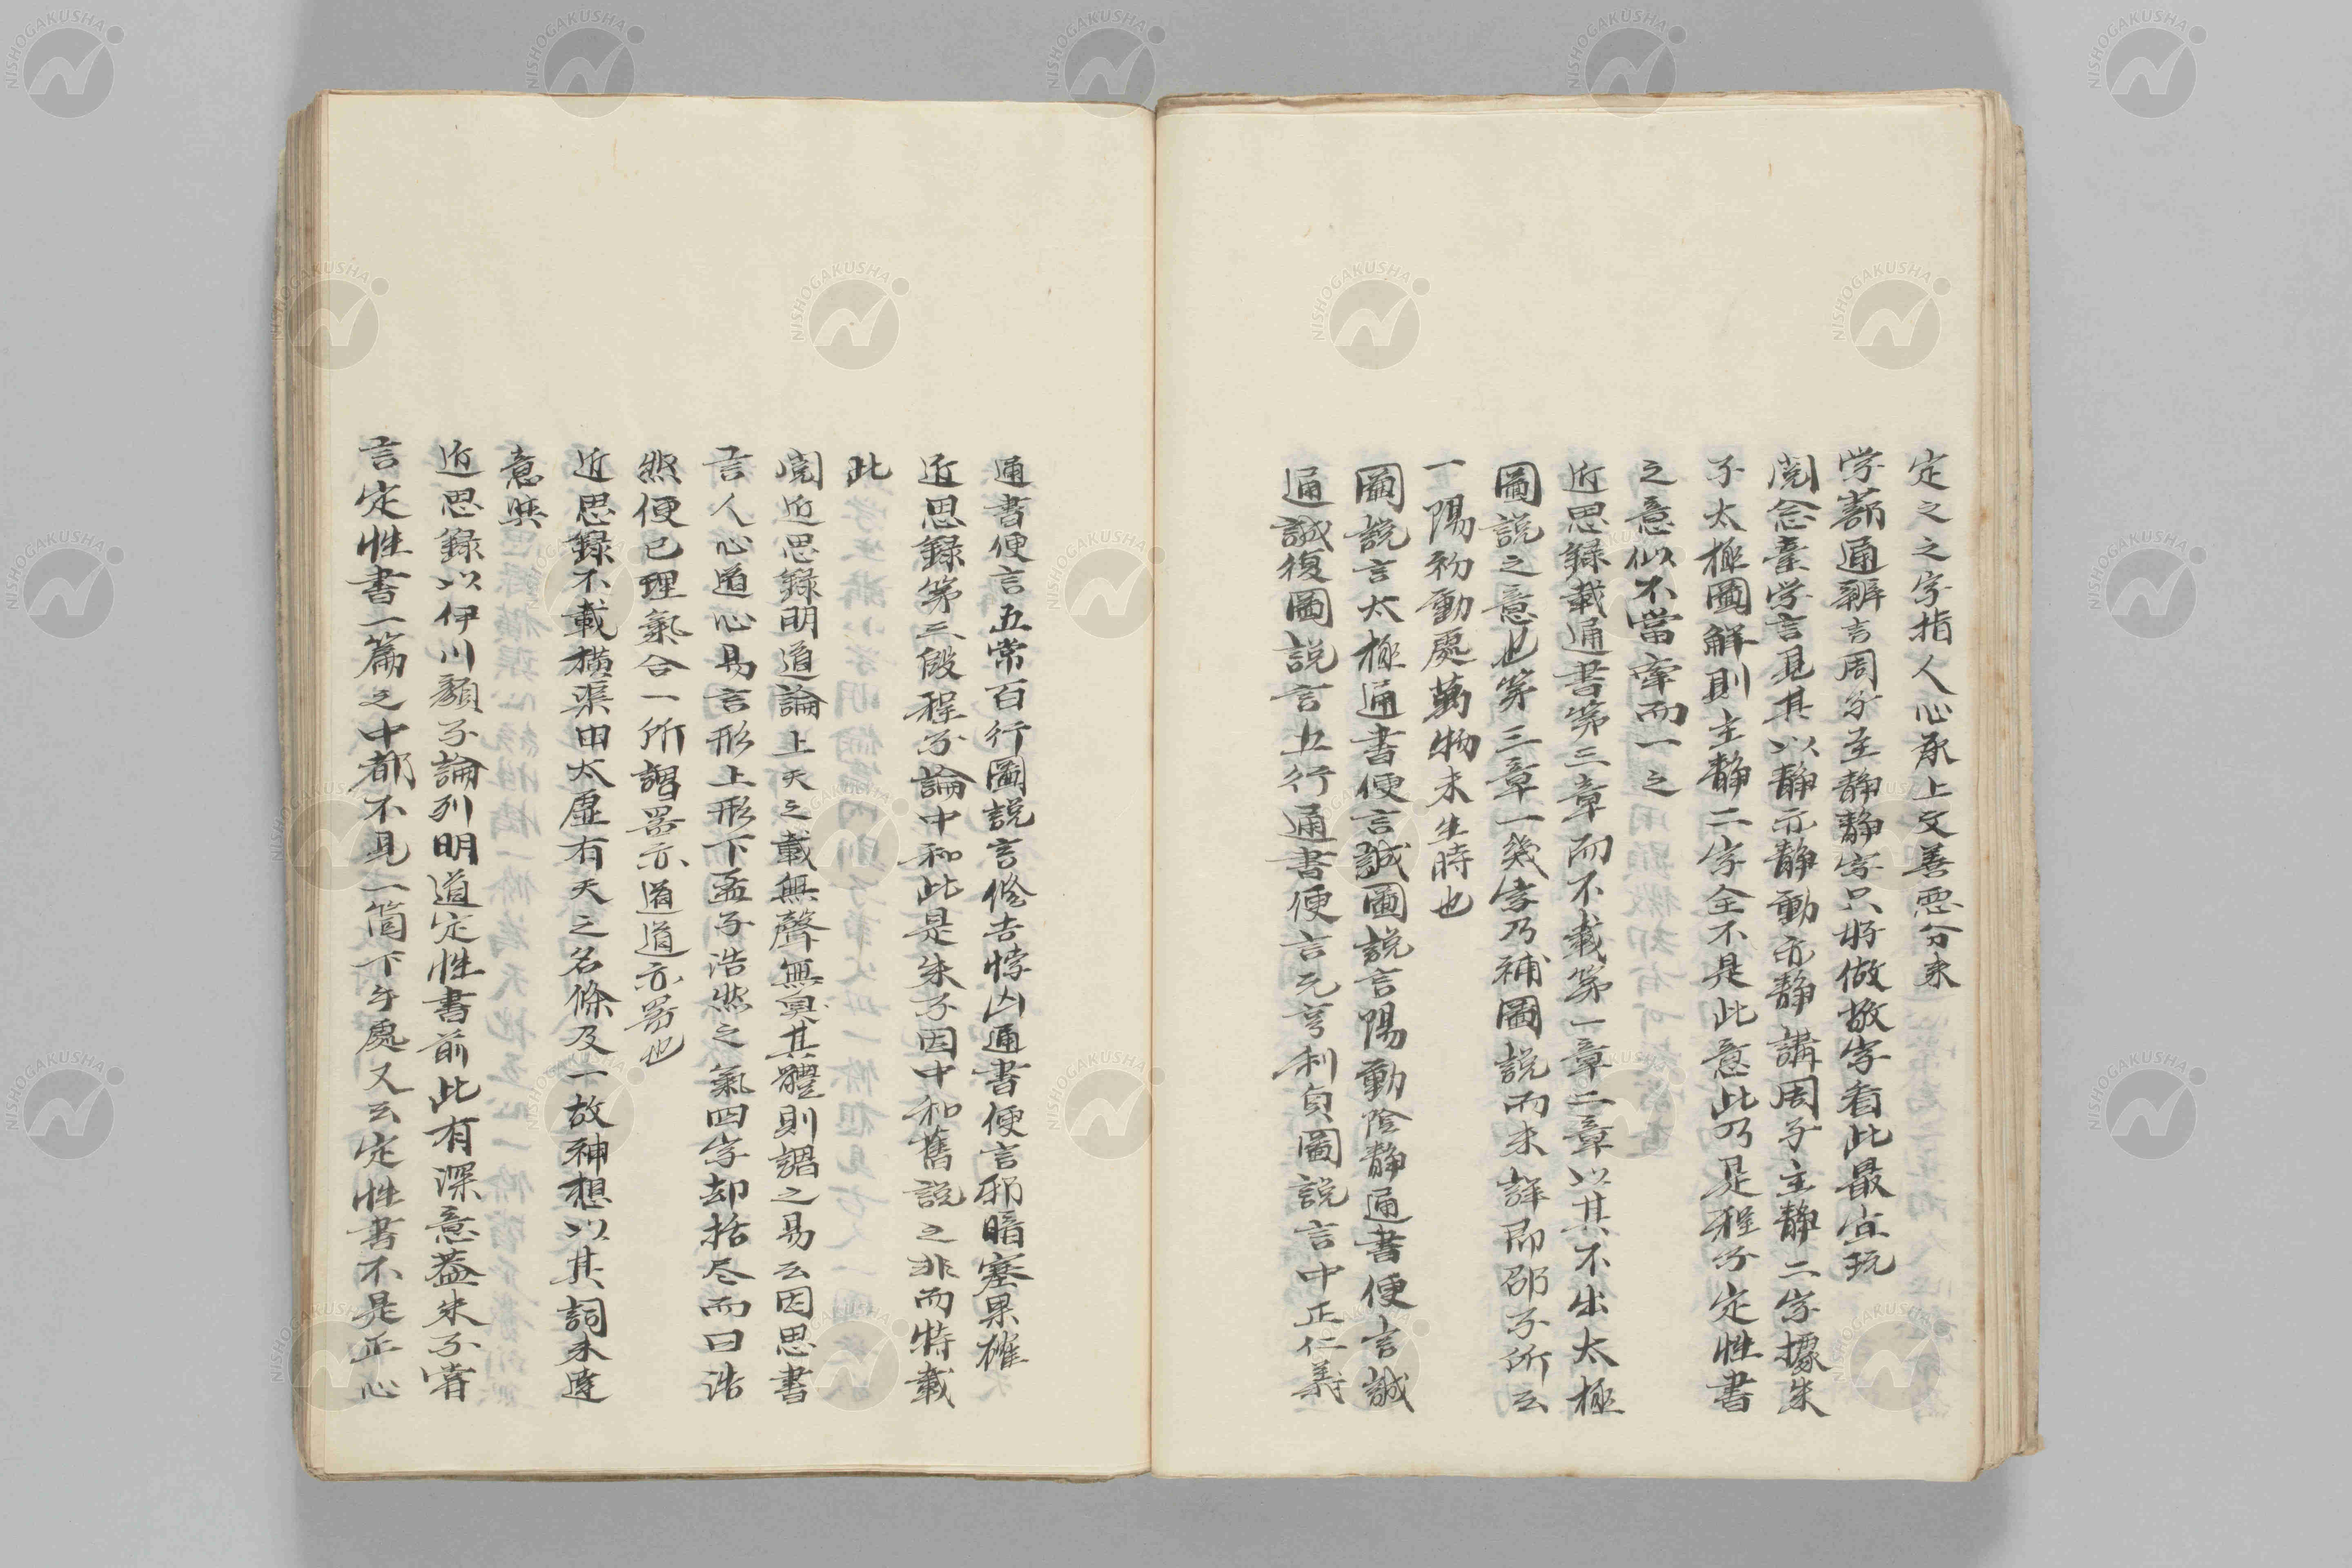 定之之字指人心承上文善悪分来
学蔀通辨言周子主静静字只好做敬字看此最宜玩
閲念臺学言見其以静亦静動亦静講周子主静二字據朱
子太極圖解則主静二字全不是此意此乃是程子定性書
之意似不當牽而一之
近思録載通書第三章而不載第一章二章以其不出太極
圖説之意也第三章一幾字乃補圖説而未詳即邵子所云
一陽初動處萬物未生時也
圖説言太極通書便言誠圖説言陽動陰静通書便言誠
通誠復圖説言五行通書便言元亨利貞圖説言中正仁義
通書便言五常百行圖説言修吉悖凶通書便言邪暗塞果確
近思録第三段程子論中和此是朱子因中和舊説之非而特載
此
閲近思録明道論上天之載無聲無臭其體則謂之易云因思書
言人心道心易言形上形下孟子浩然之氣四字却括尽而曰浩
然便已理氣合一所謂器亦道道亦器也
近思録不載横渠由太虚有天之名條及一故神想以其詞未達
意與
近思録以伊川顔子論列明道定性書前此有深意蓋朱子嘗
言定性書一篇之中都不見一箇下手處又云定性書不是正心
NISHOGAKUSHA